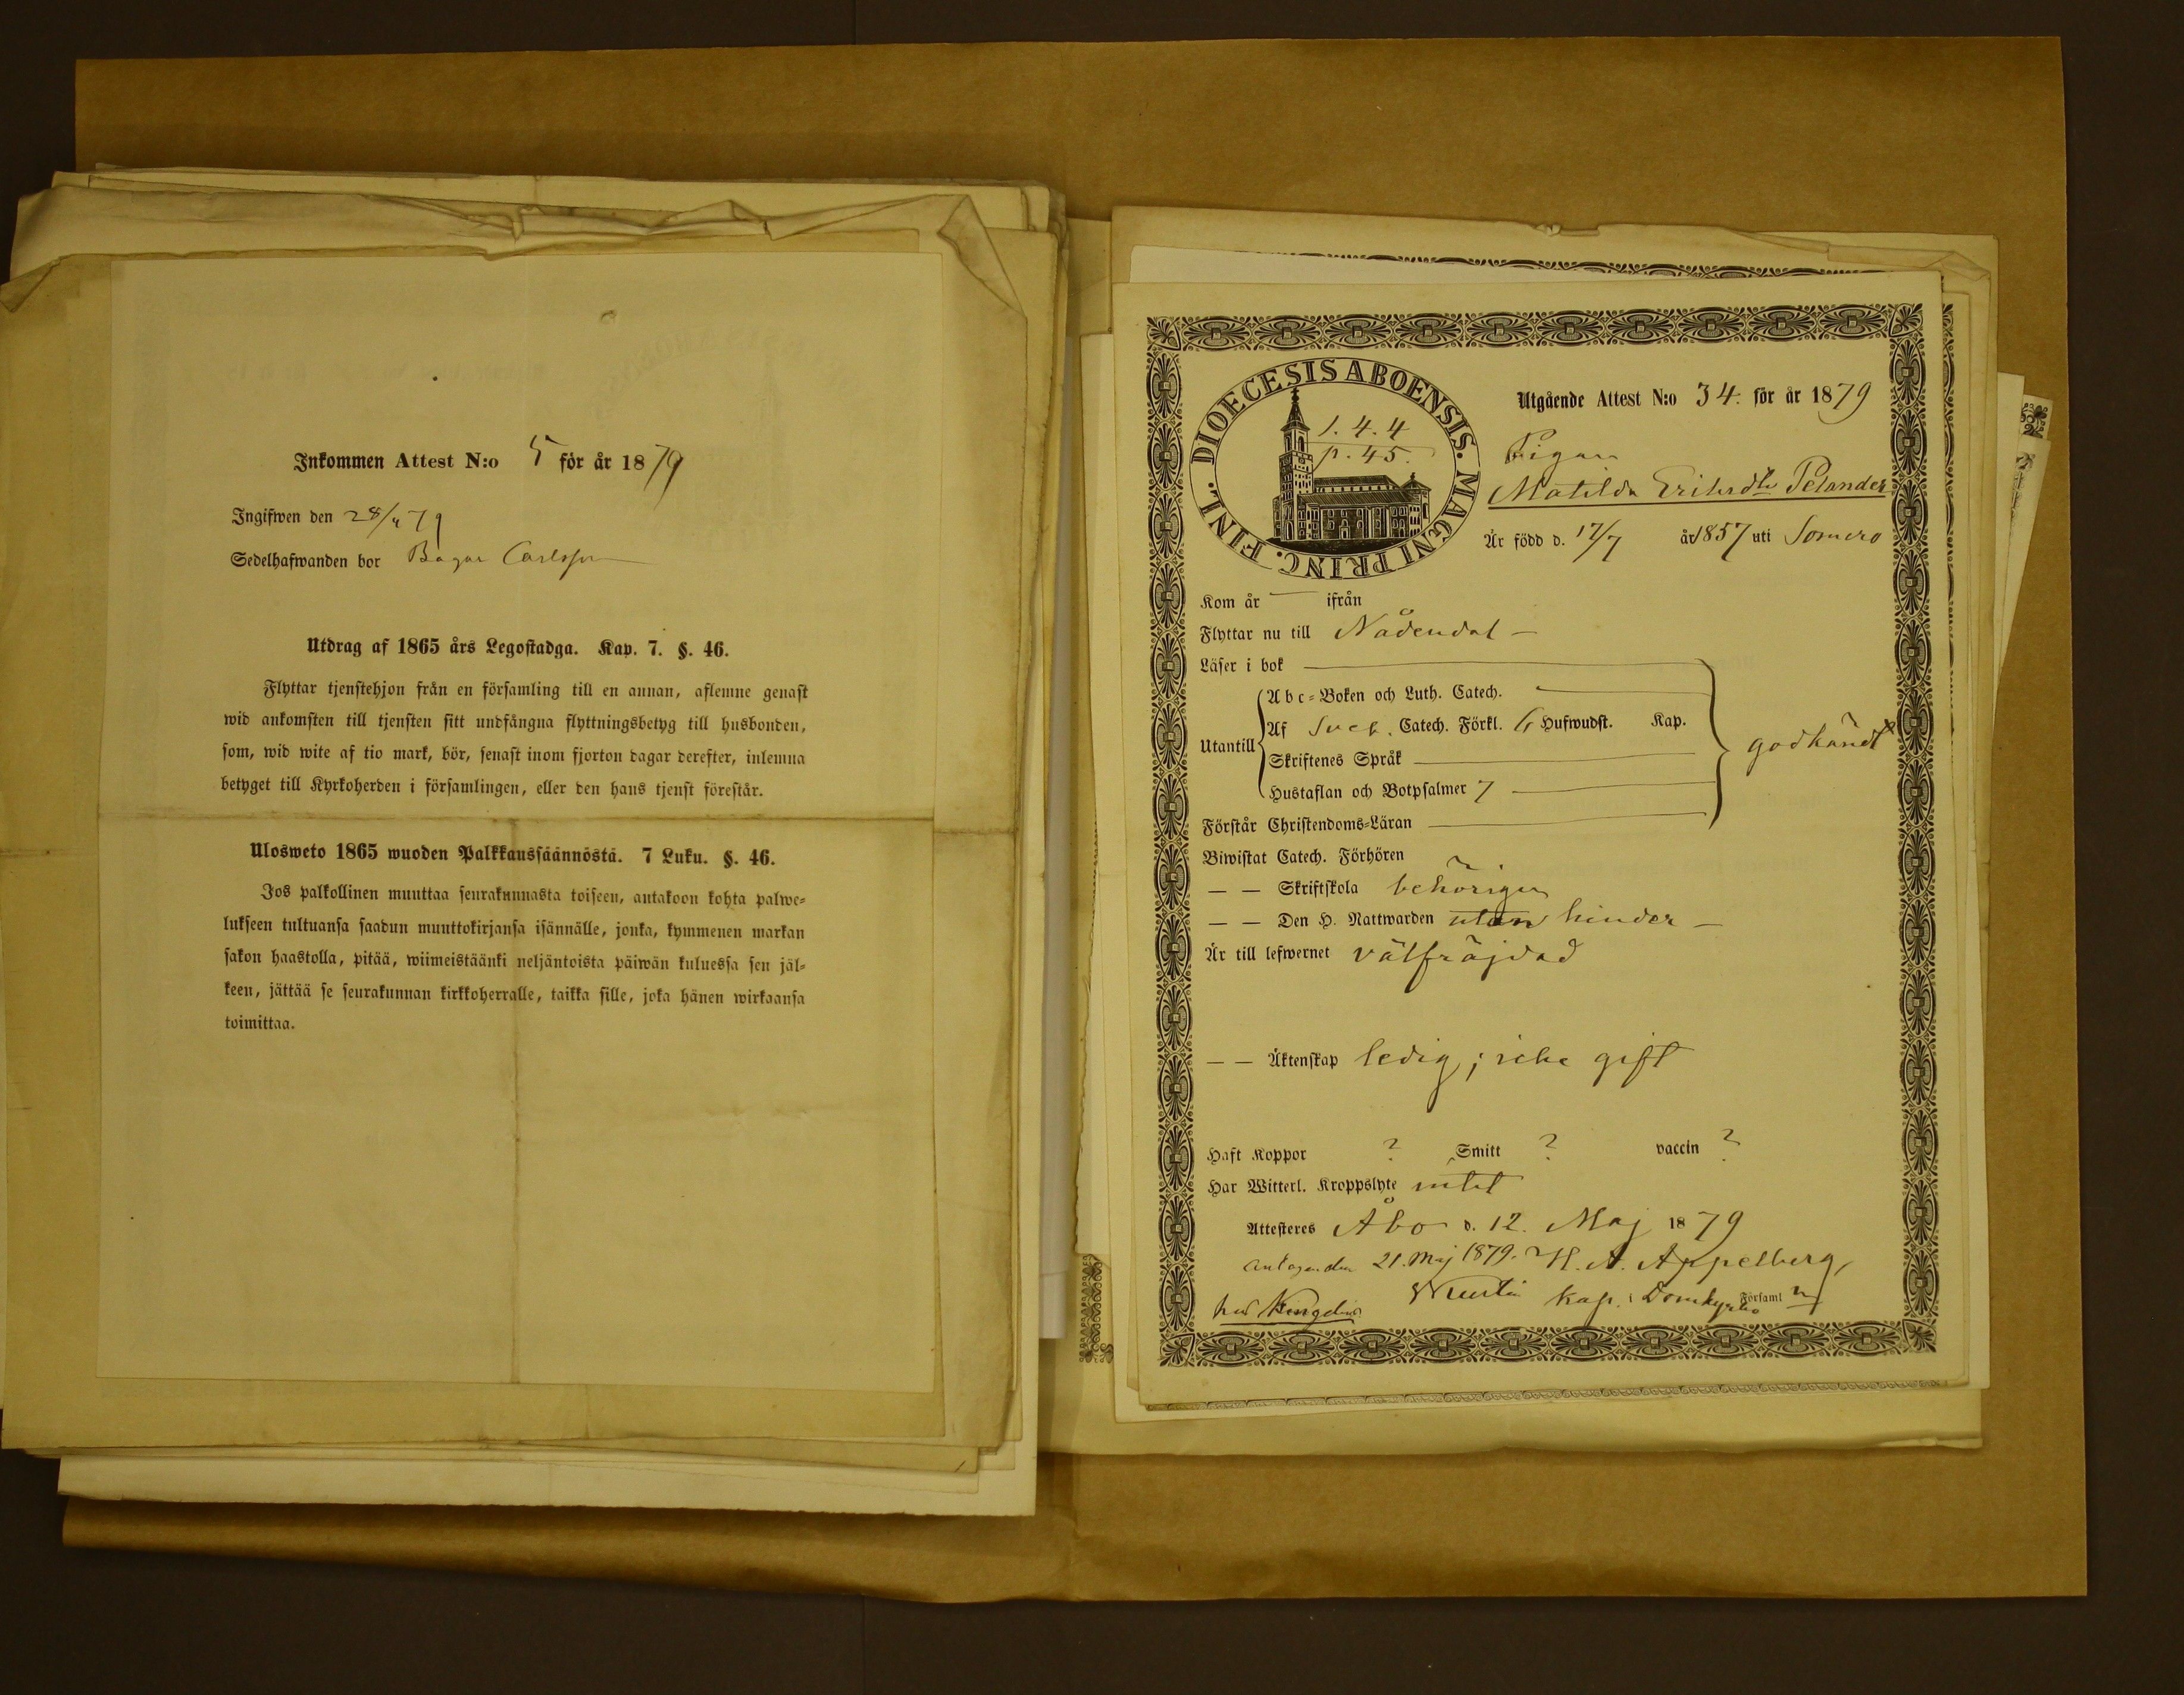 Inkommen Attest N:o 5 för år 1879
Ingifwen den 28/4 79
Sedelhafwanden bor Bagar Carlsson
Utdrag af 1865 års Legostadga. Kap. 7. §. 46.
Flyttar tjenstehjon från en församling till en annan, aflemne genast
wid ankomsten till tjensten sitt undfångna flyttningsbetyg till husbonden,
som, wid wite af tio mark, bör, senast inom fjorton dagar derefter, inlemna
betyget till Kyrkoherden i församlingen, eller den hans tjenst förestår.
Ulosweto 1865 wuoden Palkkaussäännöstä. 7 Luku. §. 46.
Jos palkollinen muuttaa seurakunnasta toiseen, antakoon kohta palwe-
lukseen tultuansa saadun muuttokirjansa isännälle, jonka, kymmenen markan
sakon haastolla, pitää, wiimeistäänki neljäntoista päiwän kuluessa sen jäl-
keen, jättää se seurakunnan kirkkoherralle, taikka sille, joka hänen wirkaansa
toimittaa.
DIOECESIS ABOENSIS. MAGNI PRINC. FINL.
1. 4. 4
p. 45.
Utgående Attest N:o 34. för år 1879
Pigan
Matilda Eriksdtr Pelander
Är född d. 17/7 år 1857 uti Somero
Kom år — ifrån
Flyttar nu till Nådendal —
Läser i bok
Abc-Boken och Luth. Catech.
Utantill Af Sveb. Catech. Förkl. 6 Hufwudst. Kap.
godkändt
Skriftenes Språk
Hustaflan och Botpsalmer 7
Förstår Christendoms-Läran
Biwistat Catech. Förhören
— — Skriftskola behörigen
— — Den H. Nattwarden utan hinder —
Är till lefwernet välfräjdad
— — Äktenskap ledig; icke gift
Haft Koppor ? Smitt ? vaccin ?
Har Witterl. Kroppslyte intet
Attesteres Åbo d. 12. Maj 1879
Antagen den 21. Maj 1879. H. A. Appelberg,
hos Kap. i Domkyrko Församl n